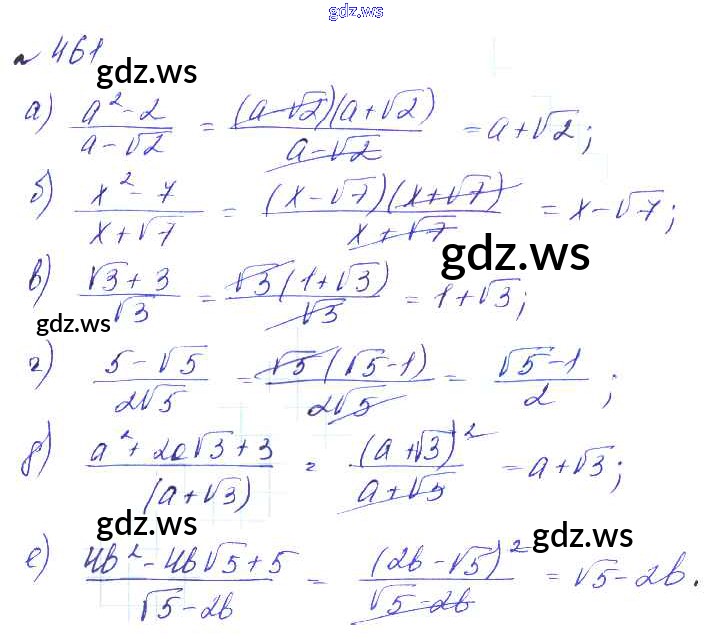 gdz.ws
№ 461
gdz.ws
а) (a² - 2)/(a - √2) = ((a - √2)(a + √2))/(a - √2) = a + √2;
б) (x² - 7)/(x + √7) = ((x - √7)(x + √7))/(x + √7) = x - √7;
gdz.ws
в) (√3 + 3)/√3 = (√3(1 + √3))/√3 = 1 + √3;
gdz.ws
г) (5 - √5)/(2√5) = (√5(√5 - 1))/(2√5) = (√5 - 1)/2;
д) (a² + 2a√3 + 3)/(a + √3) = (a + √3)²/(a + √3) = a + √3;
gdz.ws
gdz.ws
е) (4b² - 4b√5 + 5)/(√5 - 2b) = (2b - √5)²/(√5 - 2b) = √5 - 2b.